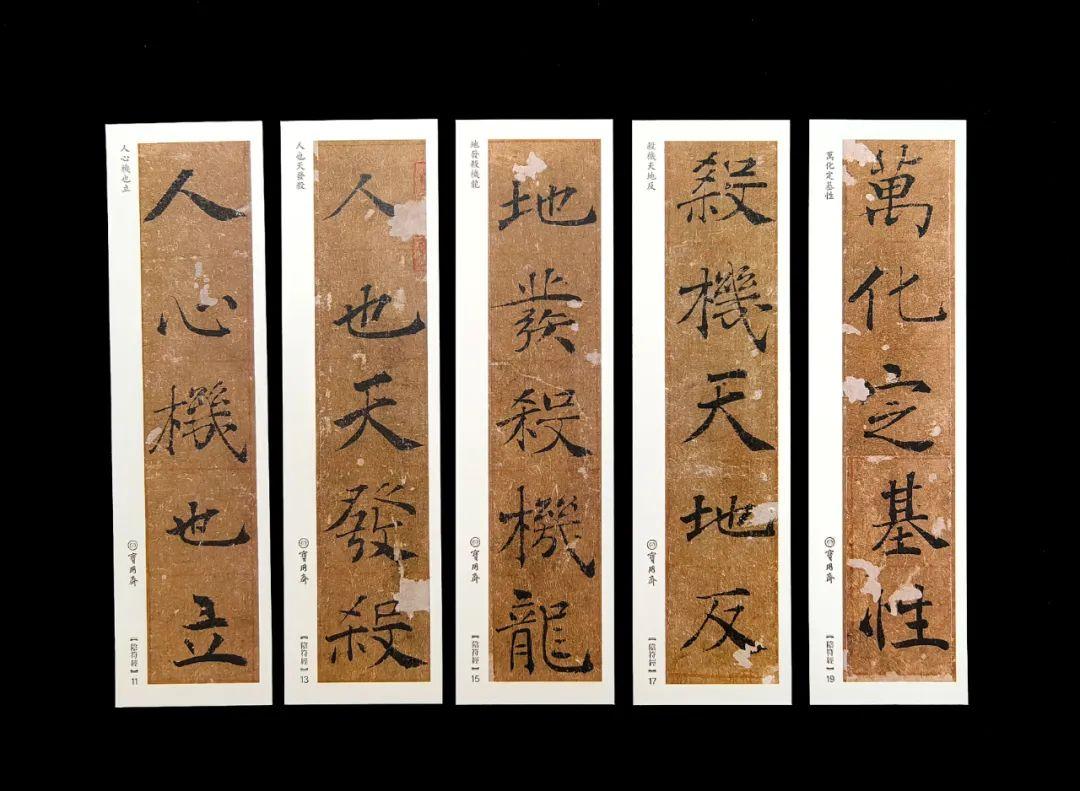 人心機也立
人心機也立
【陰符經】
11
人也天發殺
人也天發殺
【陰符經】
13
地發殺機龍
地發殺機龍
【陰符經】
15
殺機天地反
殺機天地反
【陰符經】
17
萬化定基性
萬化定基性
【陰符經】
19